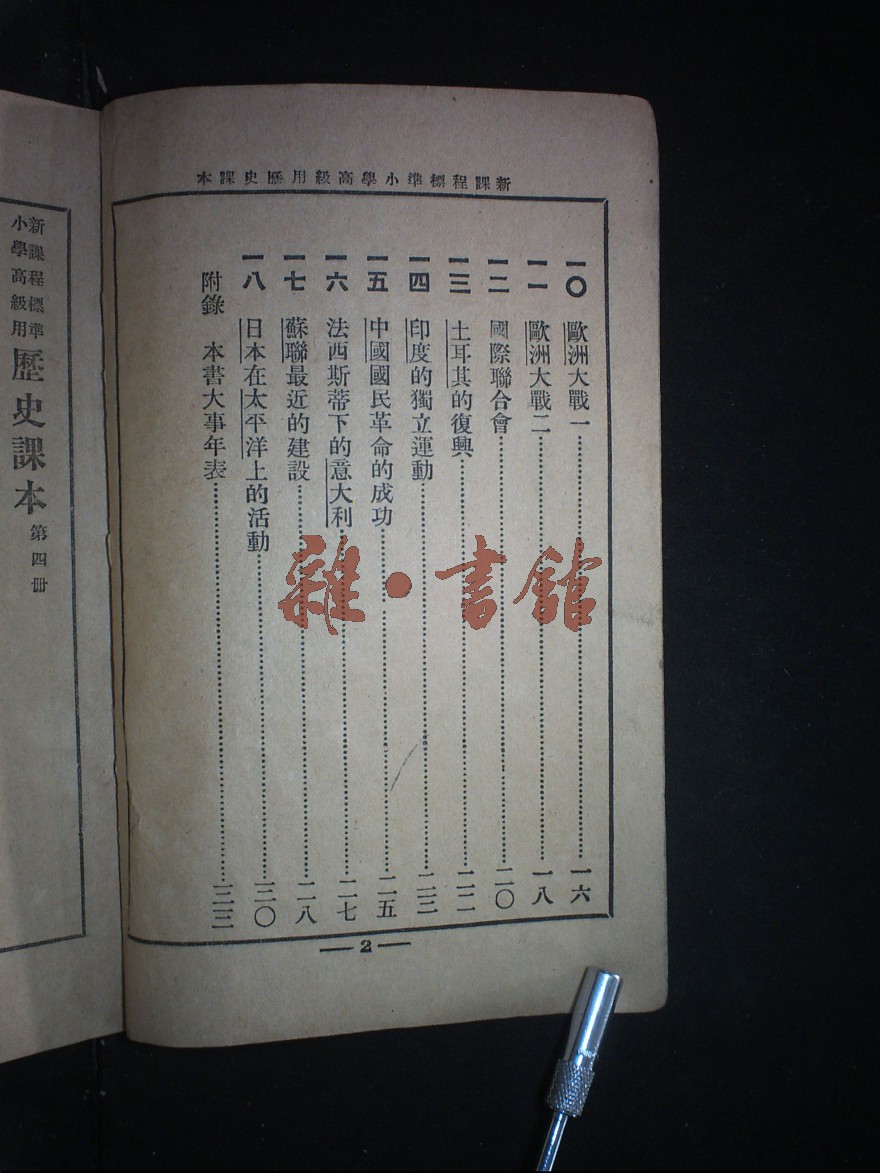 新課程標準小學高級用歷史課本
一〇 歐洲大戰一……一六
一一 歐洲大戰二……一八
一二 國際聯合會……二〇
一三 土耳其的復興……二二
一四 印度的獨立運動……二三
一五 中國國民革命的成功……二五
一六 法西斯蒂下的意大利……二七
一七 蘇聯最近的建設……二八
一八 日本在太平洋上的活動……三〇
附錄 本書大事年表……三三
— 2 —
雜·書館
新課程標準
小學高級用
歷史課本 第四冊